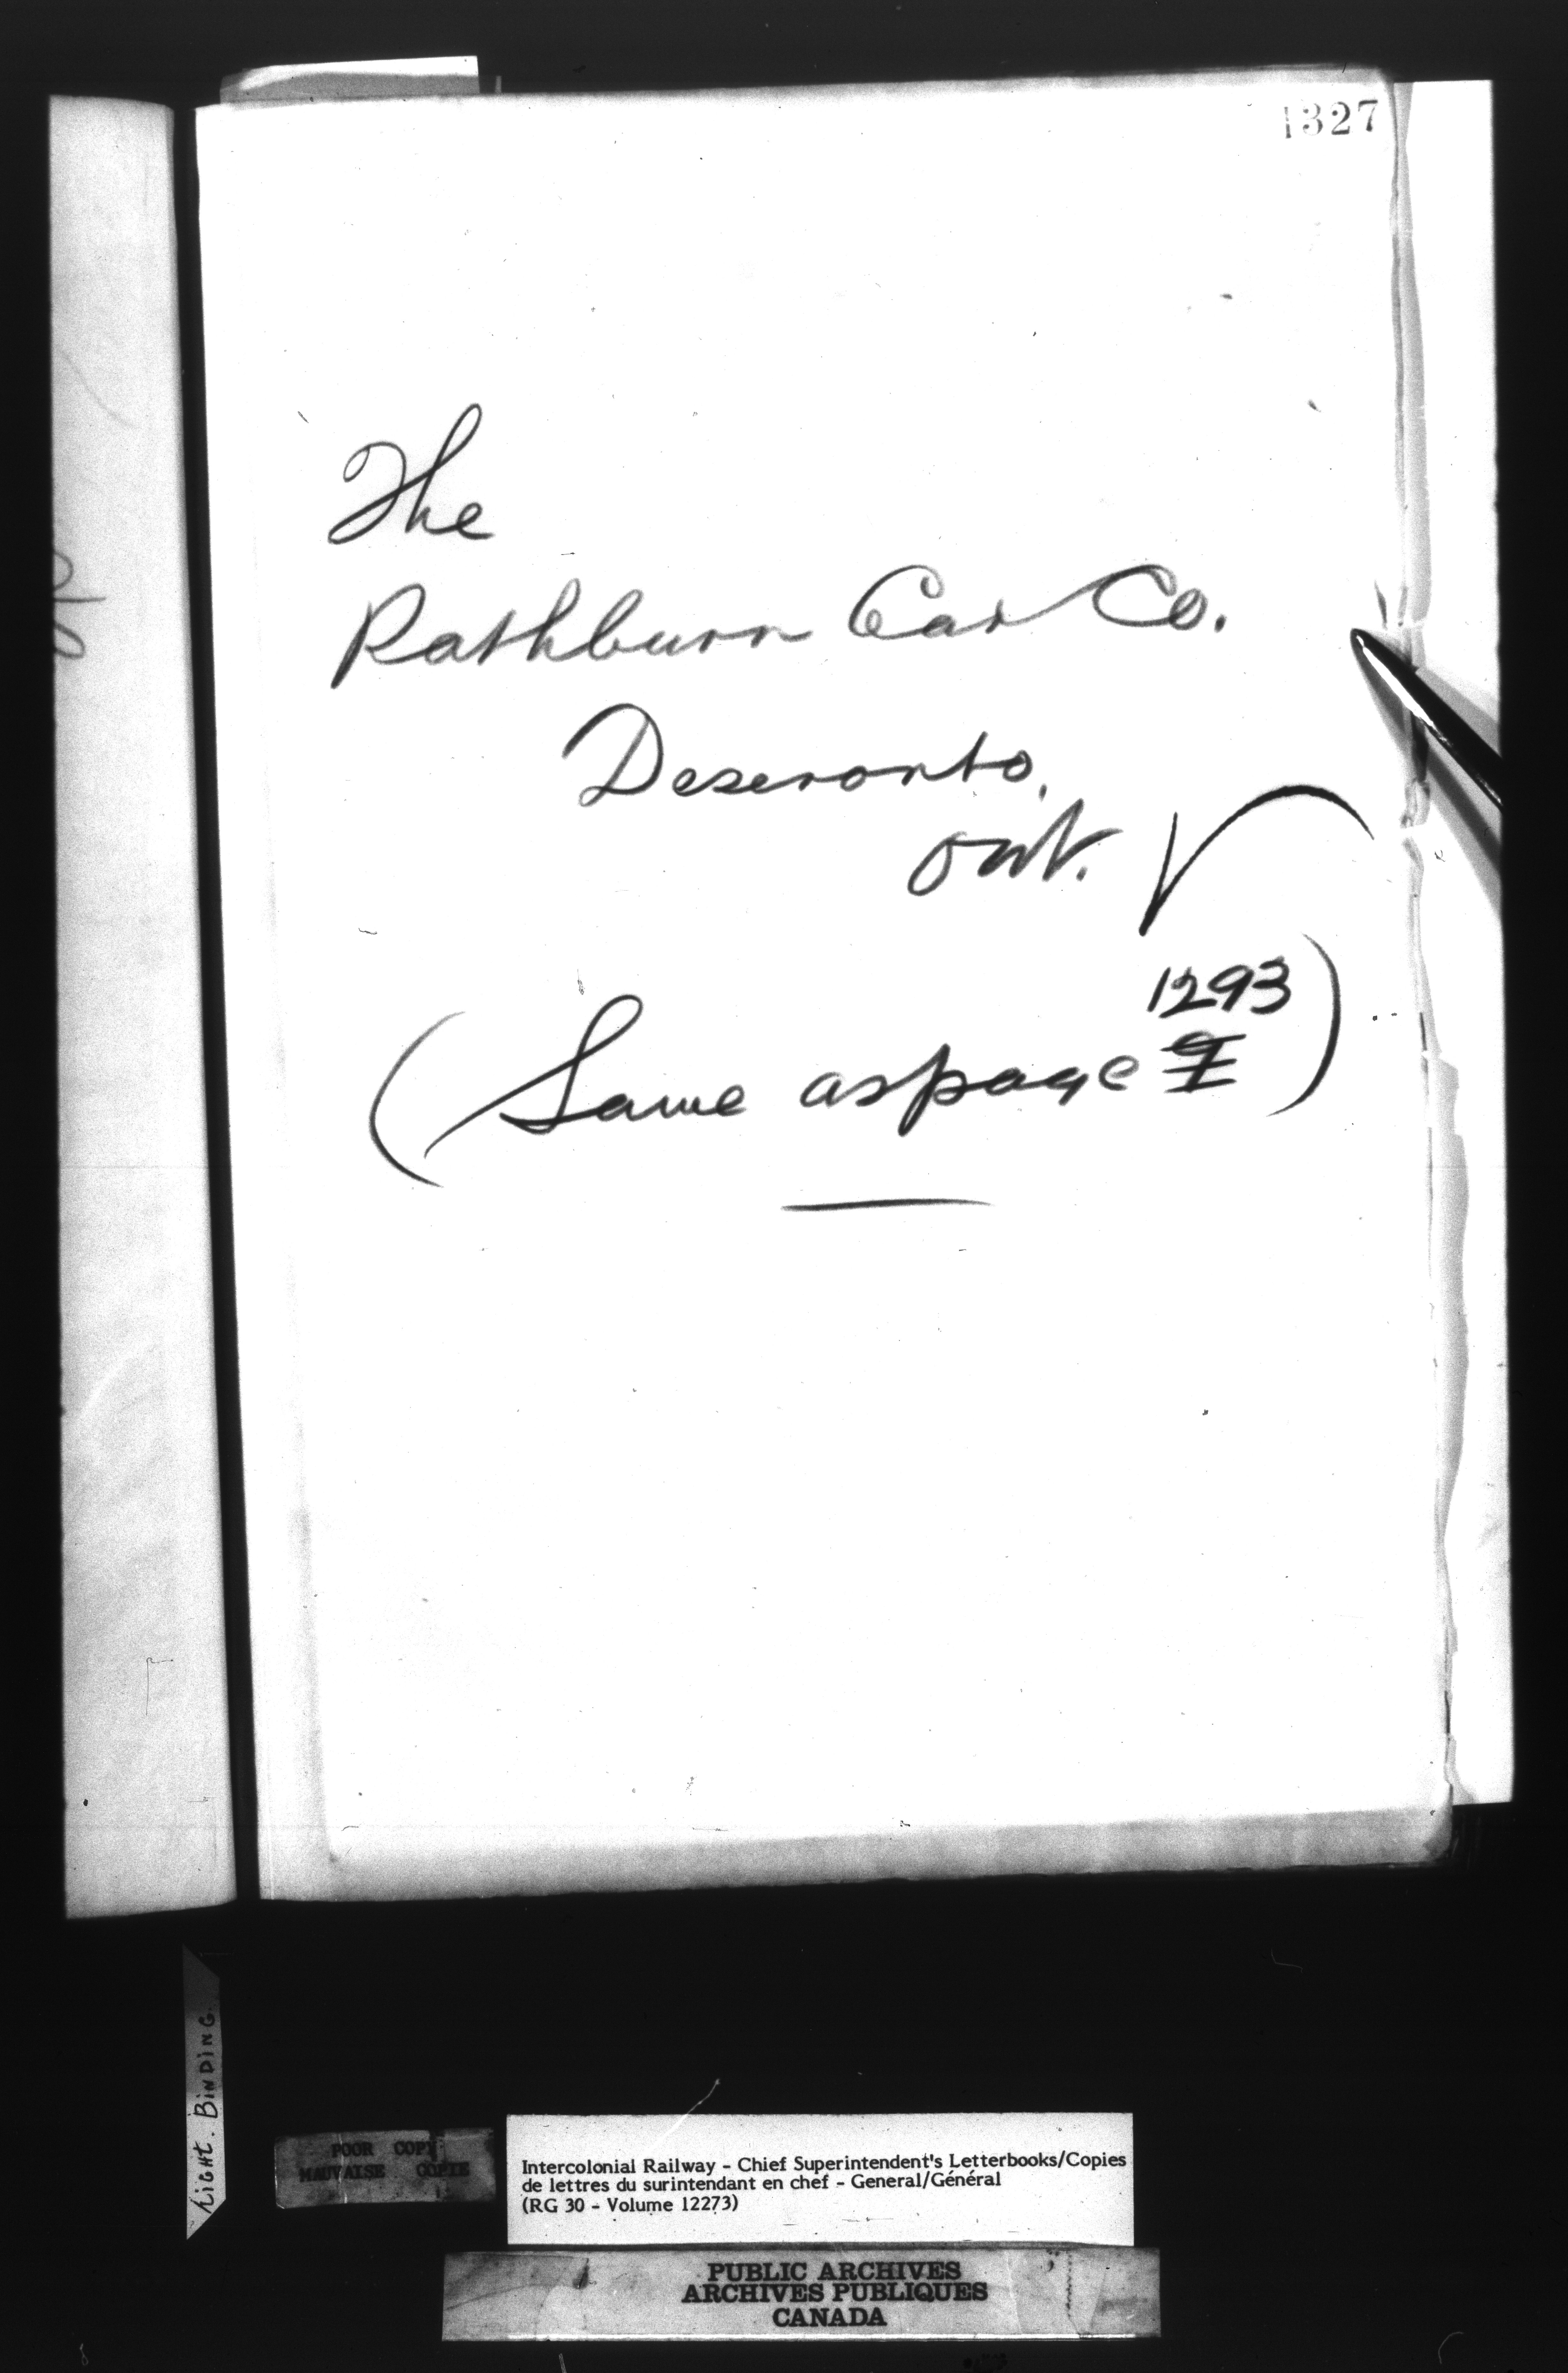 1327
The
Rathburn Car Co.
Deseronto,
Ont.
1293
(Same as page )
Tight. BINDING
POOR COPY
MAUVAISE COPIE
Intercolonial Railway - Chief Superintendent's Letterbooks/Copies
de lettres du surintendant en chef - General/Général
(RG 30 - Volume 12273)
PUBLIC ARCHIVES
ARCHIVES PUBLIQUES
CANADA